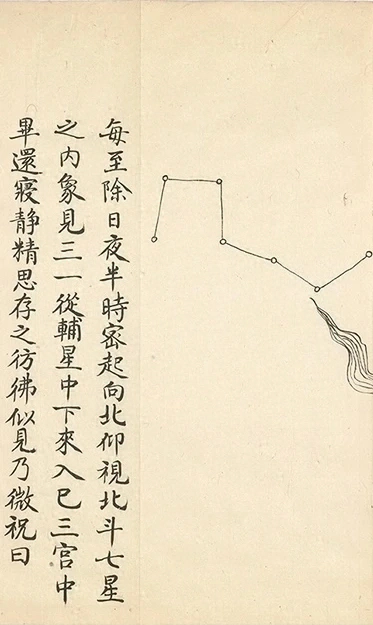 每至除日夜半時密起向北仰視北斗七星
之内象見三一從輔星中下來入已三宮中
畢還寢靜精思存之彷彿似見乃微祝曰